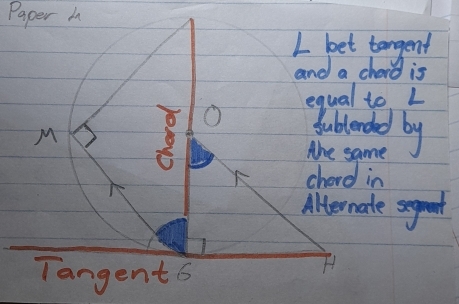 Paper 4
L bet tangent
and a chord is
equal to L
subtended by
the same
chord in
Alternate segment
Chord
O
M
Tangent
G
H